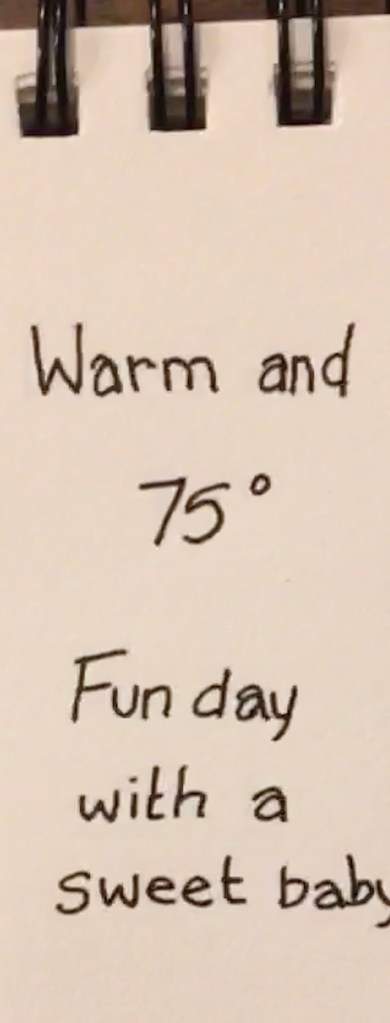 Warm and
75°
Fun day
with a
sweet baby